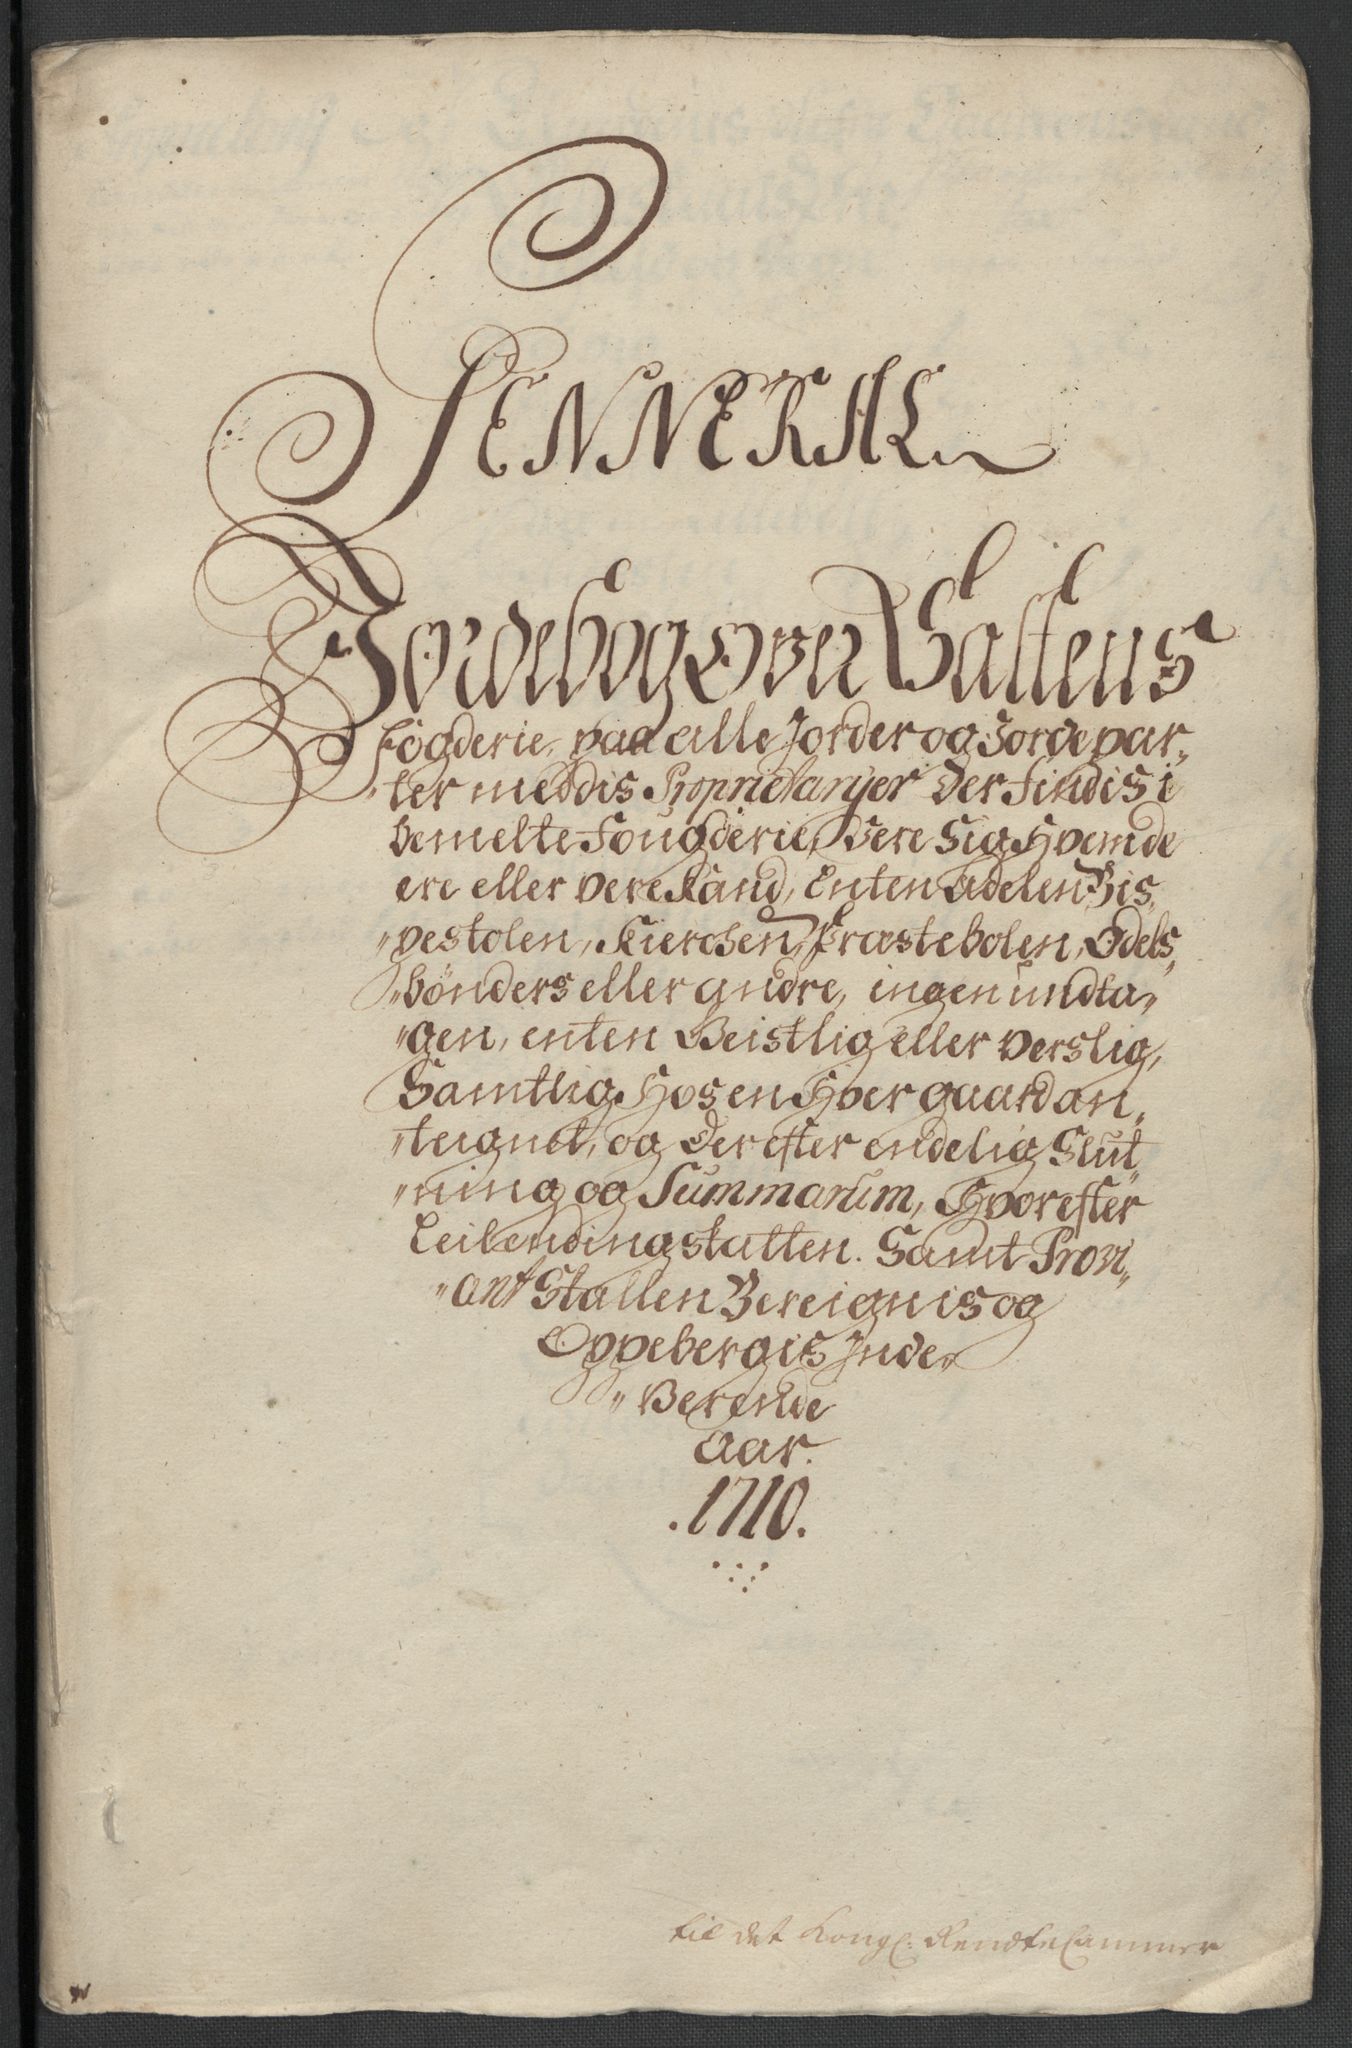 GENNERAL
Jordebog Over Saltens
fögderie, paa alle Jorder og Jordepar„
„ter med dis Proprietarijer der findis i
bemelte Fougderie, Vere Sig Hvem de
ere eller vere Kand, Enten Adelen Bis„
„pestolen, Kierchen, Præstebolen, Odels„
„bönders eller andre, ingen undta„
„gen, enten Geistlig eller verslig,
Samtlig Hos en Hver gaard an„
„teignet, og Der efter endelig Slut„
„ning og Summarum, Hvorefter
Leilendingskatten. Samt Provi„
„ant Skatten Bereignis og
Oppebergis Inde„
„Verende
Aar.
.1710.
til det Kongl: Rendte Cammer